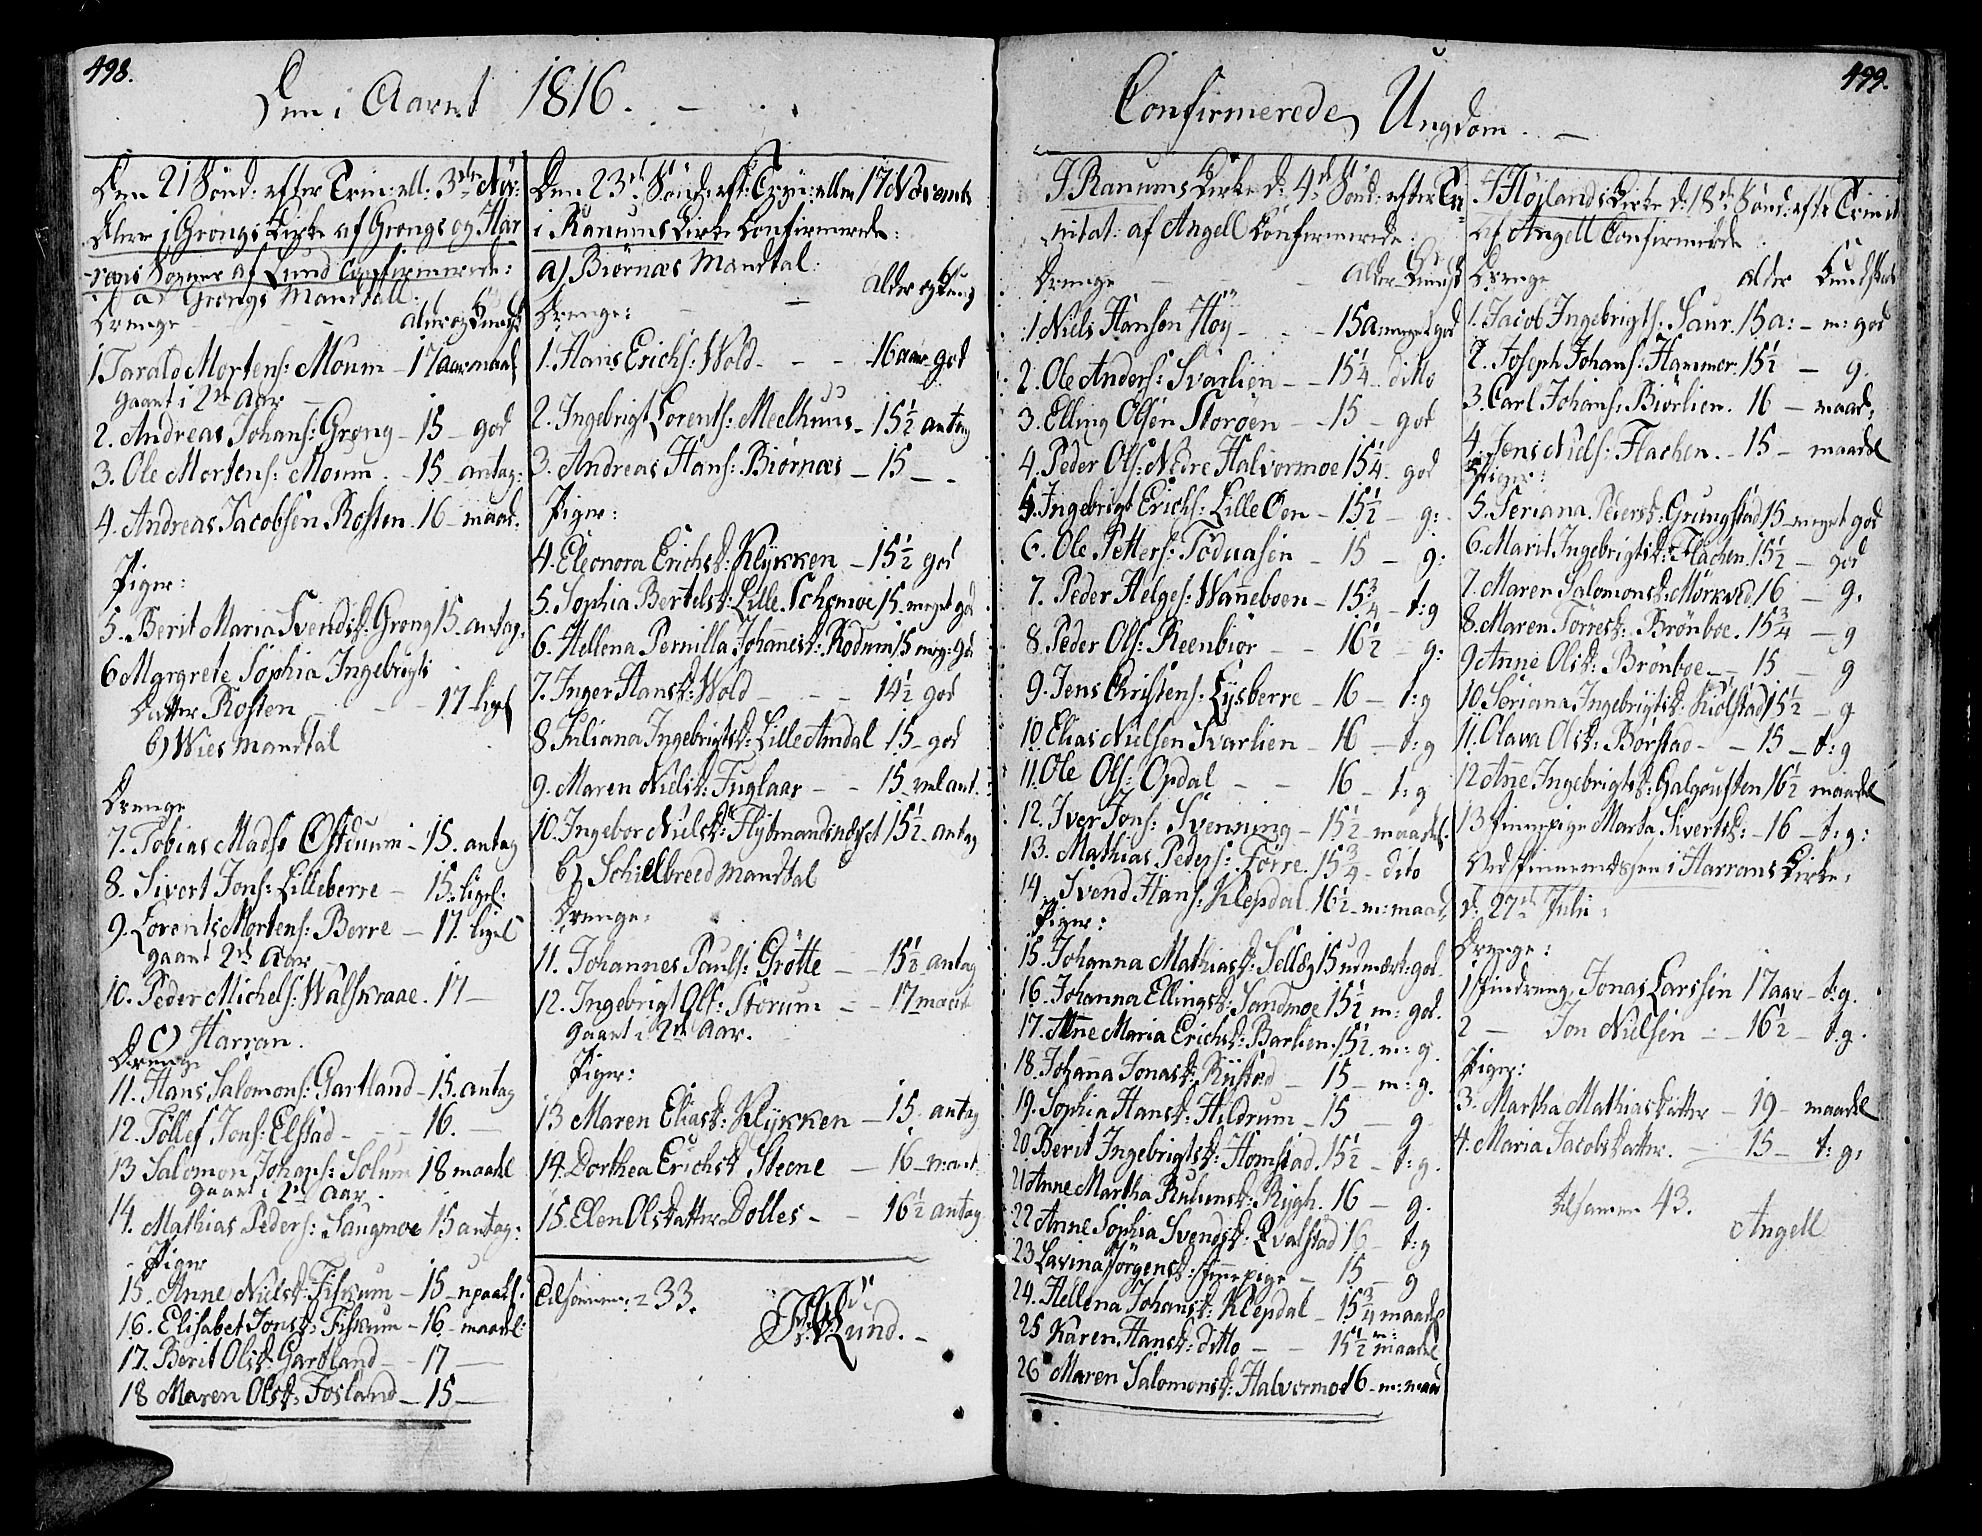 498.
Den i Aaret 1816. -
Den 21 Sönd: efter Trin: ell: 3de Nov:
blev i Grongs Kirke af Grongs og Har
rans Sogner af Lund Confirmerede:
a) Grongs Mandtall.
Drenge - - - alder og Kundsk
1. Tarald Mortens: Moum - 17 aar maad
gaaet i 2det Aar -
2. Andreas Johans: Grong - 15 - god
3. Ole Mortens: Moum. - 15 - antag:
4. Andreas Jacobsen Rosten. 16 - maad.
Piger:
5. Berit Maria Svendsd: Grong 15 - antag.
6 Margrete Sophia Ingebrigts
Datter Rosten - - - 17 ligel
b) Wies Mandtal
Drenge
7. Tobias Mads: Ostduum - 15. antag
8. Sivert Jons: Lilleberre - 15. ligel:
9. Lorents Mortens: Berre - 17. ligel
gaaet 2det Aar -
10. Peder Michels: Walskraae. 17 -
c) Harran.
Drenge
11. Hans Salomons: Gartland - 15. antag
12. Tollef Jons: Elstad - - - 16. -
13 Salomon Johans: Solum 18 maadel
gaaet i 2det Aar.
14. Mathias Peders: Saugmoe 15 antag:
Piger
15. Anne Nielsd: Fiskum - 15 - maadl:
16. Elisabet Jonsd: Fiskum - 16 - maadel:
17. Berit Olsd: Gartland - - 17 -
18 Maren Olsd: Fosland - 15 -
Den 23de Sönd: eft: Trin: eller 17 Novembr
i Ranums Kirke Confirmerede:
a) Biørnæs Mandtal:
Drenge: - - alder og Kundsk
1. Hans Erichs: Wold - - - 16 aar god
2. Ingebrigt Lorents: Meelhuus - 15½ antag
3. Andreas Hans: Biørnæs - 15 - -
Piger:
4. Eleonora Erichsd: Klykken - 15½ god
5. Sophia Bertelsd: Lille Schomoe 15 - meget god
6. Hellena Pernilla Johanesd: Rodum 15 meg: gd
7. Inger Hansd: Wold - - - 14½ god
8. Juliana Ingebrigtsd: Lille Amdal 15 - god
9. Maren Nielsd: Fuglaar - - 15 - vel ant.
10. Ingebor Nielsd: Flytmandsnæset 15½ - antag
b) Schielbreed Mandtal
Drenge:
11. Johannes Pauls: Grötte - - 15½ antag
12. Ingebrigt Ols: Storum - - 17 maad
gaaet i 2det Aar.
Piger:
13 Maren Eliasd: Klykken - 15 - antag
14. Dorthea Erichsd Steene - 16 - maat.
15. Elen Olsdatter Dolles - - 16½ antag
Tilsamen = 33.
Lund. -
499.
Confirmerede Ungdom. -
I Ranums Kirke d: 4de Sönd: efter Tri-
nitat: af Angell Confirmerede:
Drenge - - Alder - Kundsk
1 Niels Hansen Høy - - - 15 a meget god
2. Ole Anders: Svarlien - - 15¼ - ditto
3. Elling Olsen Storøen - - 15 - god
4. Peder Ols: Nedre Halvormoe 15¼ - god
5. Ingebrigt Erichs: Lille Øen - 15½ - g:
6. Ole Petters: Töduasen - 15 - g:
7. Peder Helges: Wanneboen - 15¾ - t:g
8. Peder Ols: Reenbior - - 16½ - g:
9. Jens Christens. Lysberre - 16 - t:g
10. Elias Nielsen Svarlien - 16 - t:g
11. Ole Ols: Opdal - - 16 - t:g
12. Iver Jons: Svenning - 15½ - maadel.
13. Mathias Peders: Förre. 15¾ - dito
14. Svend Hans: Klepdal. 16½ - m: maad,
Piger:
15. Johanna Mathiasd: Selleg 15 udmærk: god.
16. Johanna Ellingsd: Sandmoe 15½ m: god.
17. Anne Maria Erichsd: Barlien. 15½. m: g.
18. Johanna Jonasd: Rystad - 15 - m: g.
19. Sophia Hansd: Hildrum - 15 - g
20 Berit Ingebrigtsd: Homstad. 15½ - t:g.
21 Anne Martha Rubensd: Rygh. 16 - g.
22 Anne Sophia Svendsd: Qvalstad 16 - t:g
23 Lavina Jörgensd: Finnepige - 15 - g
24. Hellena Johansd: Klepdal - 15¾ maadel
25 Karen Hansd: ditto - - 15½ m: maadel
26 Maren Salomonsd: Halvormoe 16 - m: maad
I Höjlands Kirke d: 18de Sönd: efter Trinit
af Angell Confirmerede:
Drenge alder Kundskab
1. Jacob Ingebrigts: Saur. 15 a: - m: god
2. Joseph Johans: Hammer. 15½ - g.
3. Carl Johans: Biørlien. 16 - maad:
4. Jens Niels: Flachen. - 15 - maadel
Piger:
5. Seriana Pedersd: Grungstad 15 - meget god
6. Marit Ingebrigtsd: Flachen. 15½ - god
7. Maren Salomonsd: Mörkved. 16 - g.
8. Maren Törresd: Brönboe. 15¾ - g
9. Anne Olsd: Brönboe - - 15 - g
10. Seriana Ingebrigtsd: Kiölstad 15½ - g
11. Olava Olsd: Børstad - - 15 - t:g
12 Anne Ingebrigtsd: Galgouften 16½ maadel
13 Finnepige Marta Sivertsd: - 16 - t:g:
Ved Finnemessen i Harrans Kirke,
d: 27de Julii:
Drenge:
1 Findreng Jonas Larssen 17 aar - t:g.
2 - Jon Nielsen - 16½ - t.g.
Piger:
3. Martha Mathiasdatter - 19 - maadel
4. Maria Jacobsdatter. - 15 - t:g,
Tilsamen 43.
Angell